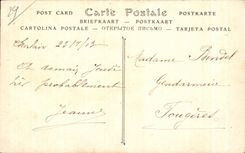 19
POST CARD Carte Postale POSTKARTE
BRIEFKAART — POSTKAART
CARTOLINA POSTALE — ОТКРЫТОЕ ПИСЬМО — TARJETA POSTAL
22 - 10 / 13
A demain Jeudi
très probablement
Jeanne
Madame
Gendarmerie
Fougères